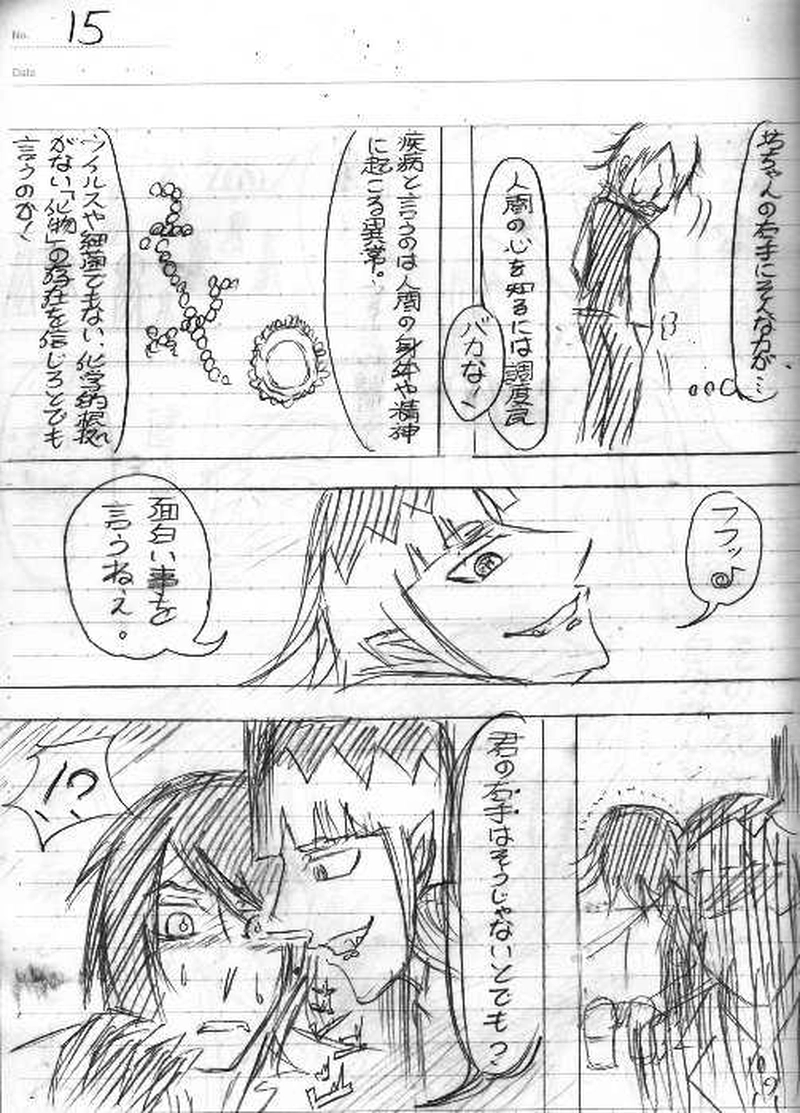 No. 15
Date
坊ちゃんの右手にそんな力が…
人間の心を知るには調度良
バカな！
疾病と言うのは人間の身体や精神
に起こる異常。
ウイルスや細菌でもない、化学的根拠
がない「化物」の存在を信じろとでも
言うのか！
フフッ♪
面白い事を
言うねぇ。
君の右手はそうじゃないとでも？
!?